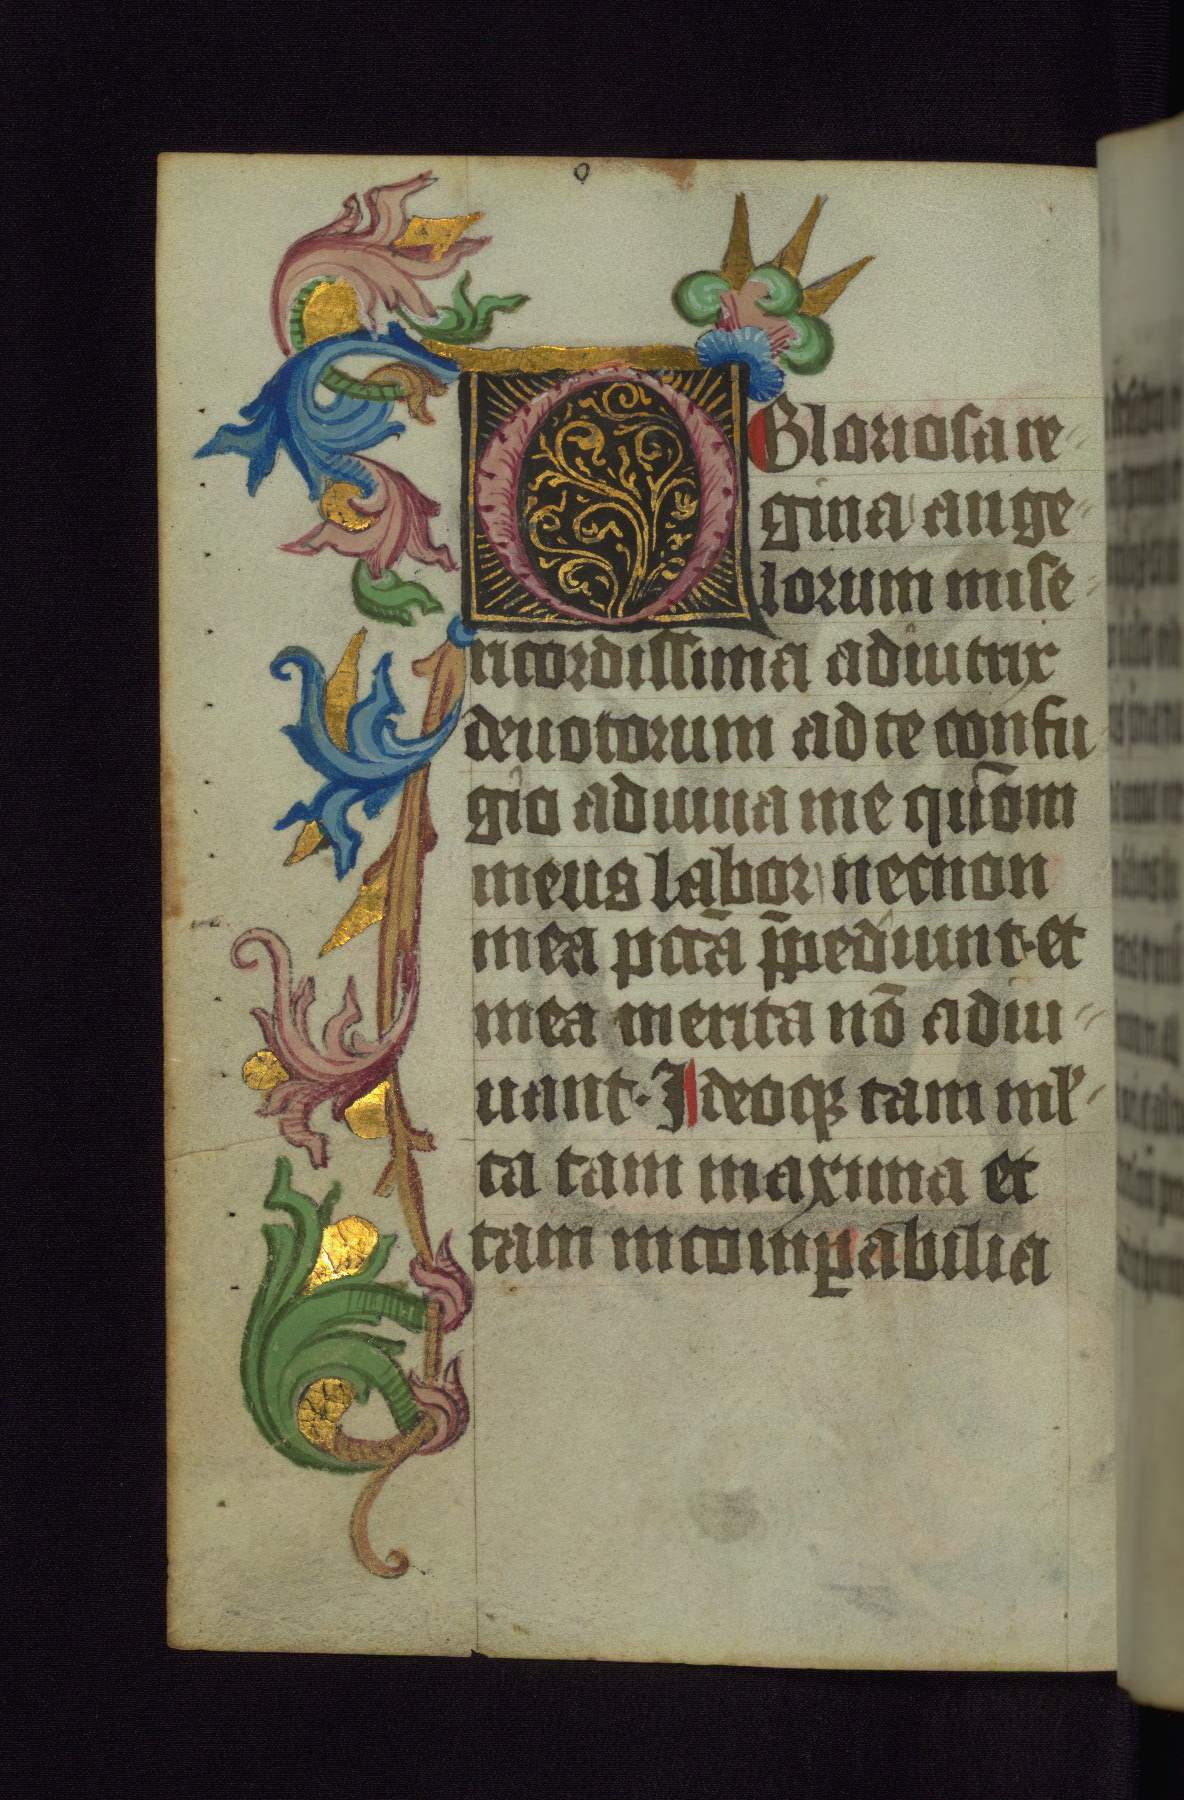 o
O Gloriosa re
gina ange
lorum mise
ricordissima adiutrix
deuotorum ad te confu
gio adiuua me qūom
meus labor necnon
mea pctā p̄pediunt · et
mea merita nō adiu
uant · Ideoq; tam ml'
ta tam maxima et
tam incomꝑabilia